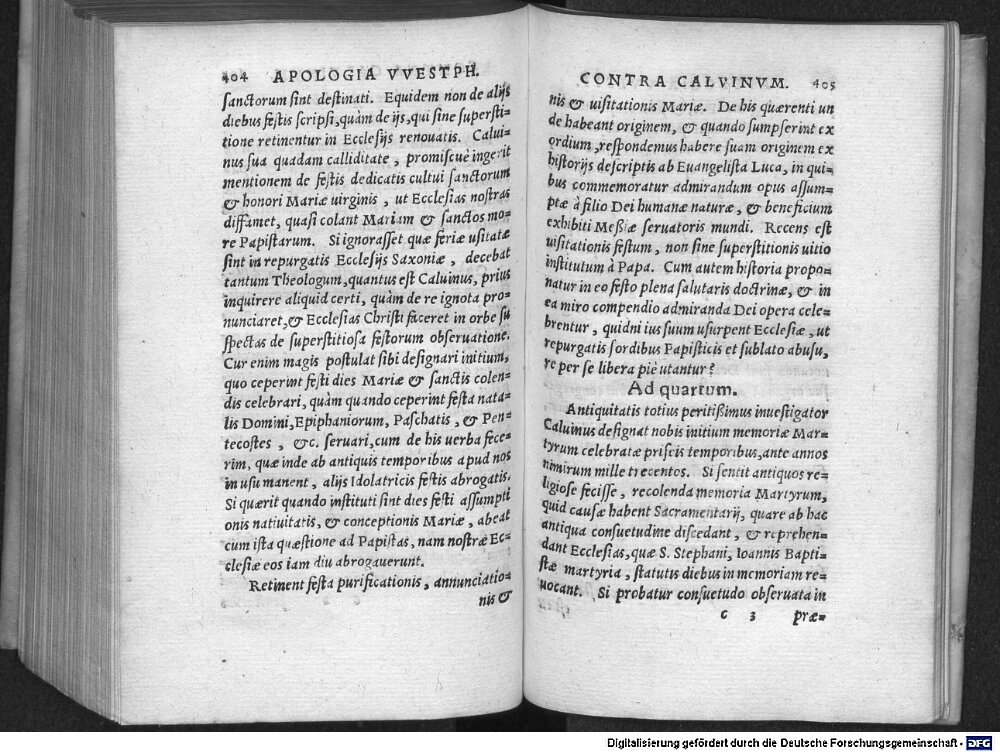 404 APOLOGIA VVESTPH.
sanctorum sint destinati. Equidem non de alijs
diebus festis scripsi, quàm de ijs, qui sine supersti=
tione retinentur in Ecclesijs renouatis. Calui=
nus sua quadam calliditate, promiscuè ingerit
mentionem de festis dedicatis cultui sanctorum
& honori Mariæ uirginis, ut Ecclesias nostras
diffamet, quasi colant Mariam & sanctos mo=
re Papistarum. Si ignorasset quæ feriæ usitatæ
sint in repurgatis Ecclesijs Saxoniæ, decebat
tantum Theologum, quantus est Caluinus, prius
inquirere aliquid certi, quàm de re ignota pro=
nunciaret, & Ecclesias Christi faceret in orbe su
spectas de superstitiosa festorum obseruatione.
Cur enim magis postulat sibi designari initium,
quo ceperint festi dies Mariæ & sanctis colen=
dis celebrari, quàm quando ceperint festa nata=
lis Domini, Epiphaniorum, Paschatis, & Pen=
tecostes, &c. seruari, cum de his uerba fece=
rim, quæ inde ab antiquis temporibus apud nos
in usu manent, alijs Idolatricis festis abrogatis.
Si quærit quando instituti sint dies festi assumpti
onis natiuitatis, & conceptionis Mariæ, abeat
cum ista quæstione ad Papistas, nam nostræ Ec=
clesiæ eos iam diu abrogauerunt.
Retinent festa purificationis, annunciatio=
nis &
CONTRA CALVINVM. 405
nis & uisitationis Mariæ. De his quærenti un
de habeant originem, & quando sumpserint ex
ordium, respondemus habere suam originem ex
historijs descriptis ab Euangelista Luca, in qui=
bus commemoratur admirandum opus assum=
ptæ à filio Dei humanæ naturæ, & beneficium
exhibiti Meßiæ seruatoris mundi. Recens est
uisitationis festum, non sine superstitionis uitio
institutum à Papa. Cum autem historia propo=
natur in eo festo plena salutaris doctrinæ, & in
ea miro compendio admiranda Dei opera cele=
brentur, quidni ius suum usurpent Ecclesiæ, ut
repurgatis sordibus Papisticis et sublato abusu,
re per se libera piè utantur?
Ad quartum.
Antiquitatis totius peritißimus inuestigator
Caluinus designat nobis initium memoriæ Mar=
tyrum celebratæ priscis temporibus, ante annos
nimirum mille trecentos. Si sentit antiquos re=
ligiose fecisse, recolenda memoria Martyrum,
quid causæ habent Sacramentarij, quare ab hac
antiqua consuetudine discedant, & reprehen=
dant Ecclesias, quæ S. Stephani, Ioannis Bapti=
stæ martyria, statutis diebus in memoriam re=
uocant. Si probatur consuetudo obseruata in
c 3 præ=
Digitalisierung gefördert durch die Deutsche Forschungsgemeinschaft - DFG